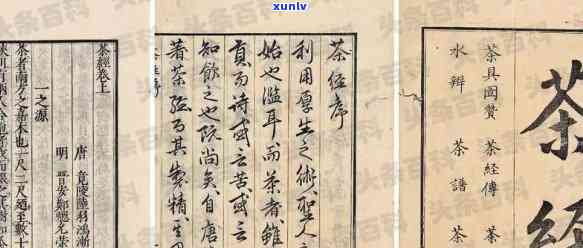 xunlv
茶経
茶具圖贊 茶経傳 茶
水辨 茶譜 茶
茶经序
利用厚生之術聖人之
始也濫耳而茶者雖
而詩或云苦或云
知飲之也既尚矣自唐
著茶经而其製精
茶經卷上
唐 竟陵陸羽鴻漸
明 晉安鄭熜允榮
一之源
茶者南方之嘉木也一尺二尺廼至數十
有兩人合抱者伐而掇之其樹如
头条百科